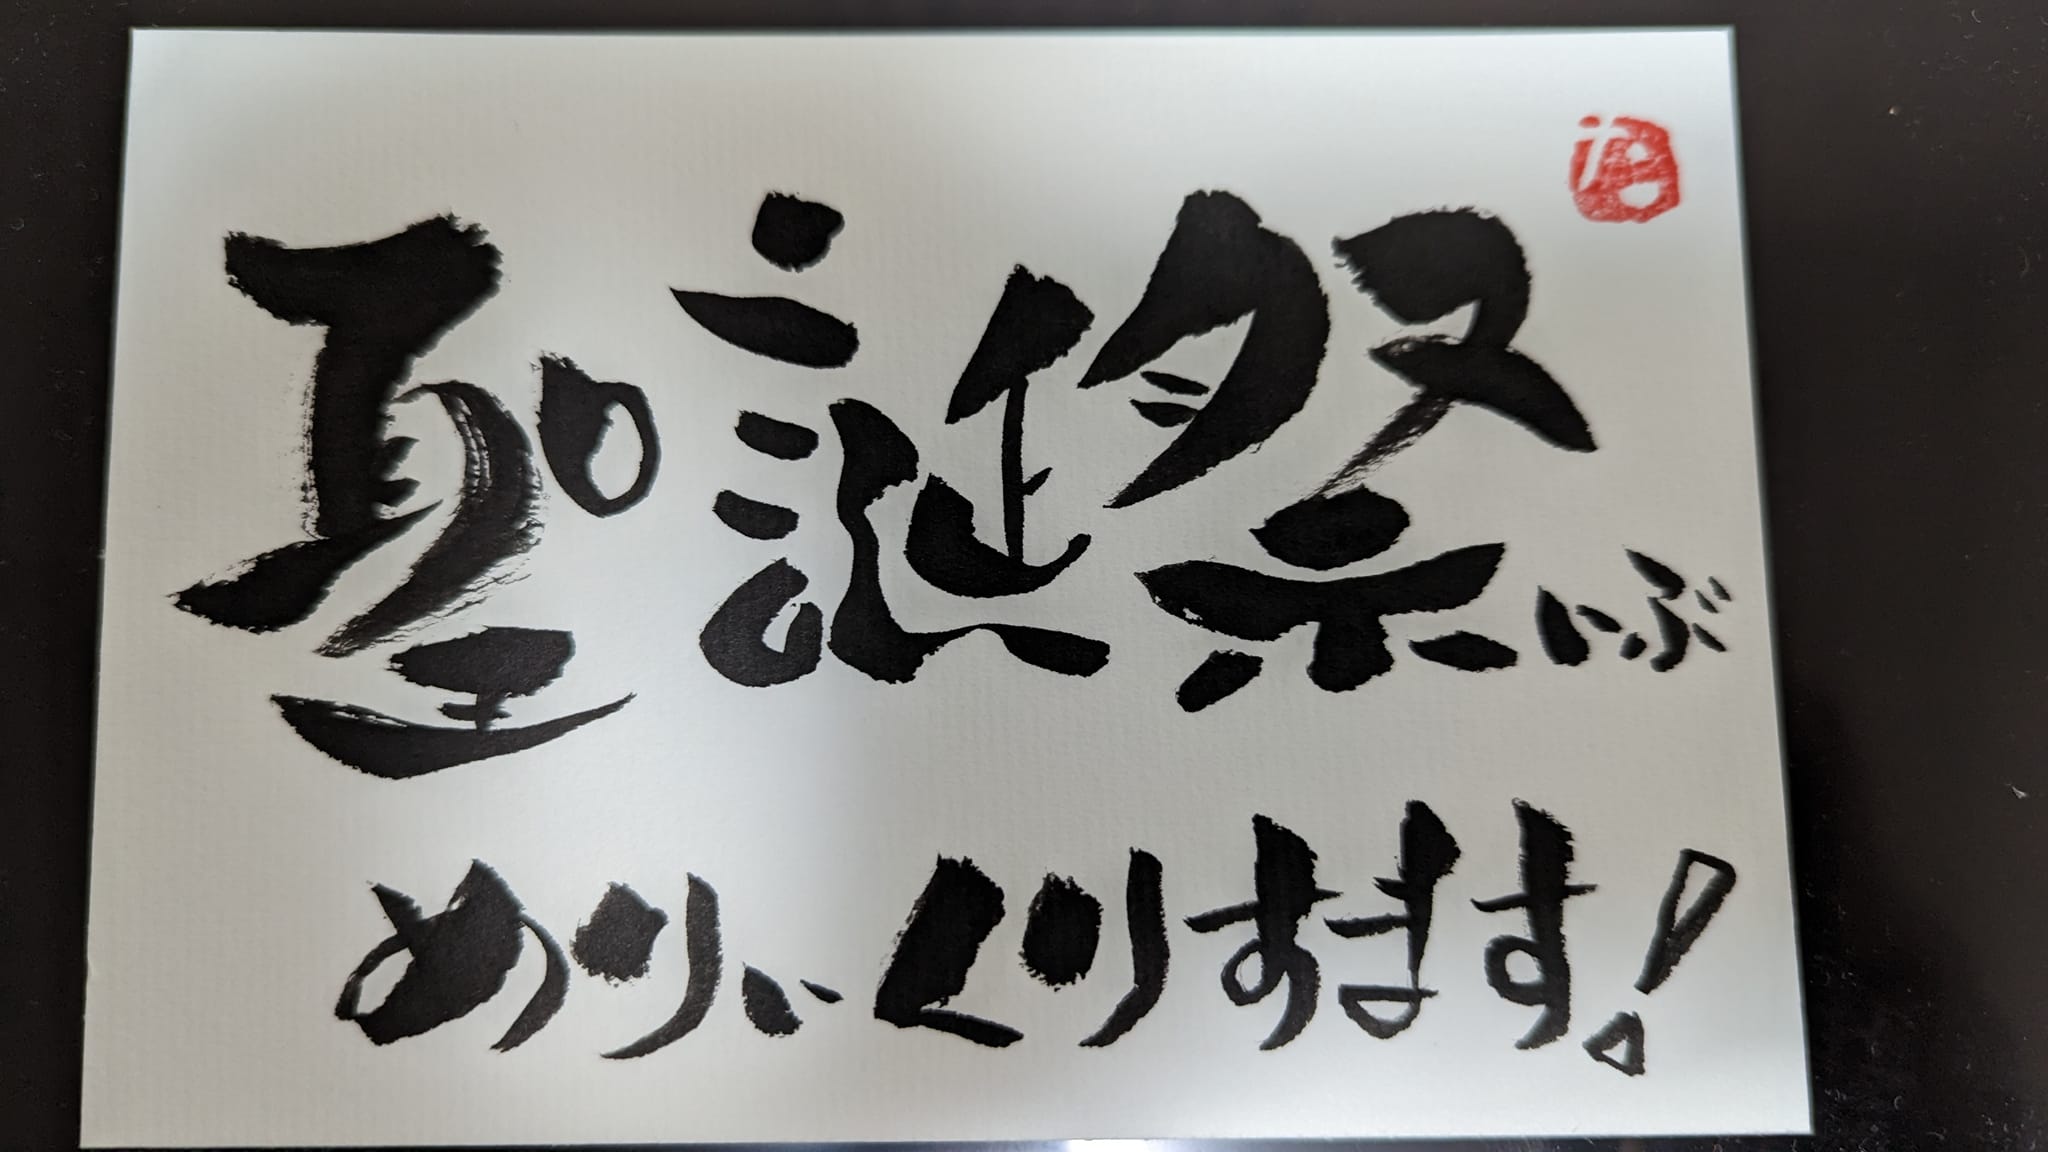 聖誕祭いぶ
めりぃくりすます!